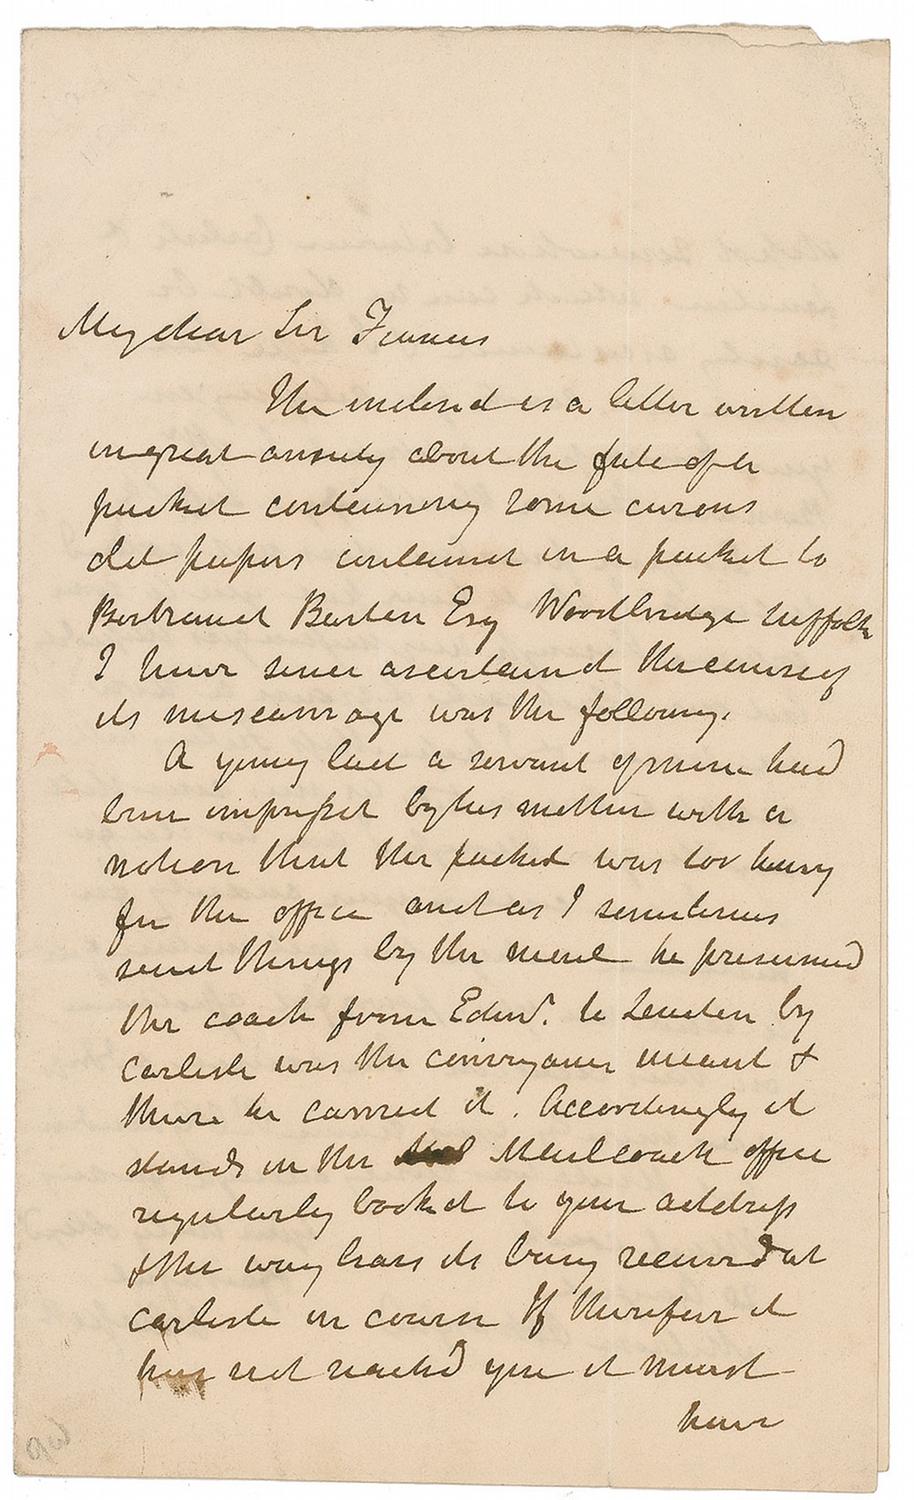 My dear Sir Francis
The inclosed is a letter written
in great anxiety about the fate of a
packet containing some curious
old papers containd in a packet to
Bertrand Barton Esq Woodbridge Suffolk
I have since ascertaind the cause of
its miscarriage was the following.
A young lad a servant of mine had
been impressd by his mother with a
notion that the packet was too heavy
for the office and as I sometimes
send things by the mail he presumed
the coach from Edinr. to London by
Carlisle was the conveyance meant &
there he carried it. Accordingly it
stands in the Mailcoach office
regularly bookd to your address
& the way bears its being received at
Carlisle in course If therefore it
has not reachd you it must
have